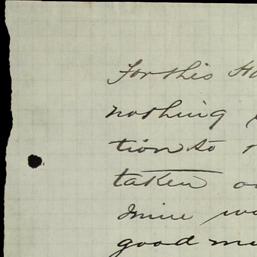 for this
nothing
tion to
taken
mine
good